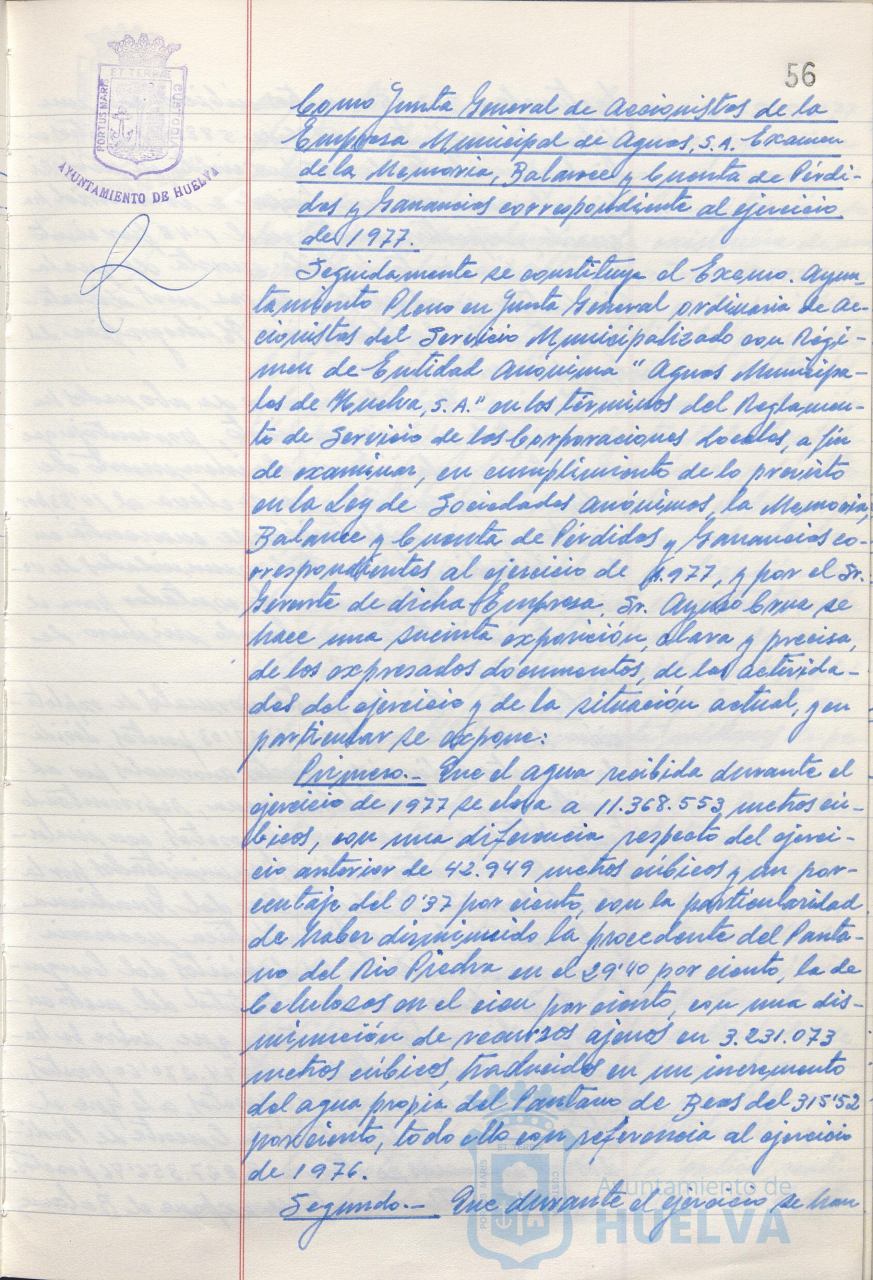 56
ET TERRAE
PORTUS MARIS
CUSTODIA
AYUNTAMIENTO DE HUELVA
Como Junta General de Accionistas de la
Empresa Municipal de Aguas, S.A. Examen
de la Memoria, Balance y Cuenta de Pérdi-
das y Ganancias correspondiente al ejercicio
de 1977.
Seguidamente se constituye el Excmo. Ayun-
tamiento Pleno en Junta General ordinaria de Ac-
cionistas del Servicio Municipalizado con Régi-
men de Entidad Anónima "Aguas Municipa-
les de Huelva, S.A." en los términos del Reglamen-
to de Servicio de las Corporaciones Locales, a fin
de examinar, en cumplimiento de lo previsto
en la Ley de Sociedades Anónimas, la Memoria,
Balance y Cuenta de Pérdidas y Ganancias co-
rrespondientes al ejercicio de 1.977, y por el Sr.
Gerente de dicha Empresa, Sr. Ayuso se
hace una sucinta exposición, clara y precisa,
de los expresados documentos, de las activida-
des del ejercicio y de la situación actual, y en
particular se expone:
Primero.- Que el agua recibida durante el
ejercicio de 1977 se eleva a 11.368.553 metros cú-
bicos, con una diferencia respecto del ejerci-
cio anterior de 42.949 metros cúbicos y un por-
centaje del 0'37 por ciento, con la particularidad
de haber disminuido la procedente del Panta-
no del Rio Piedra en el 29'40 por ciento, la de
Celulosas en el cien por ciento, con una dis-
minución de recursos ajenos en 3.231.073
metros cúbicos, traducidos en un incremento
del agua propia del Pantano de Beas del 315'52
por ciento, todo ello con referencia al ejercicio
de 1976.
Segundo.- Que durante el ejercicio se han
Ayuntamiento de
HUELVA